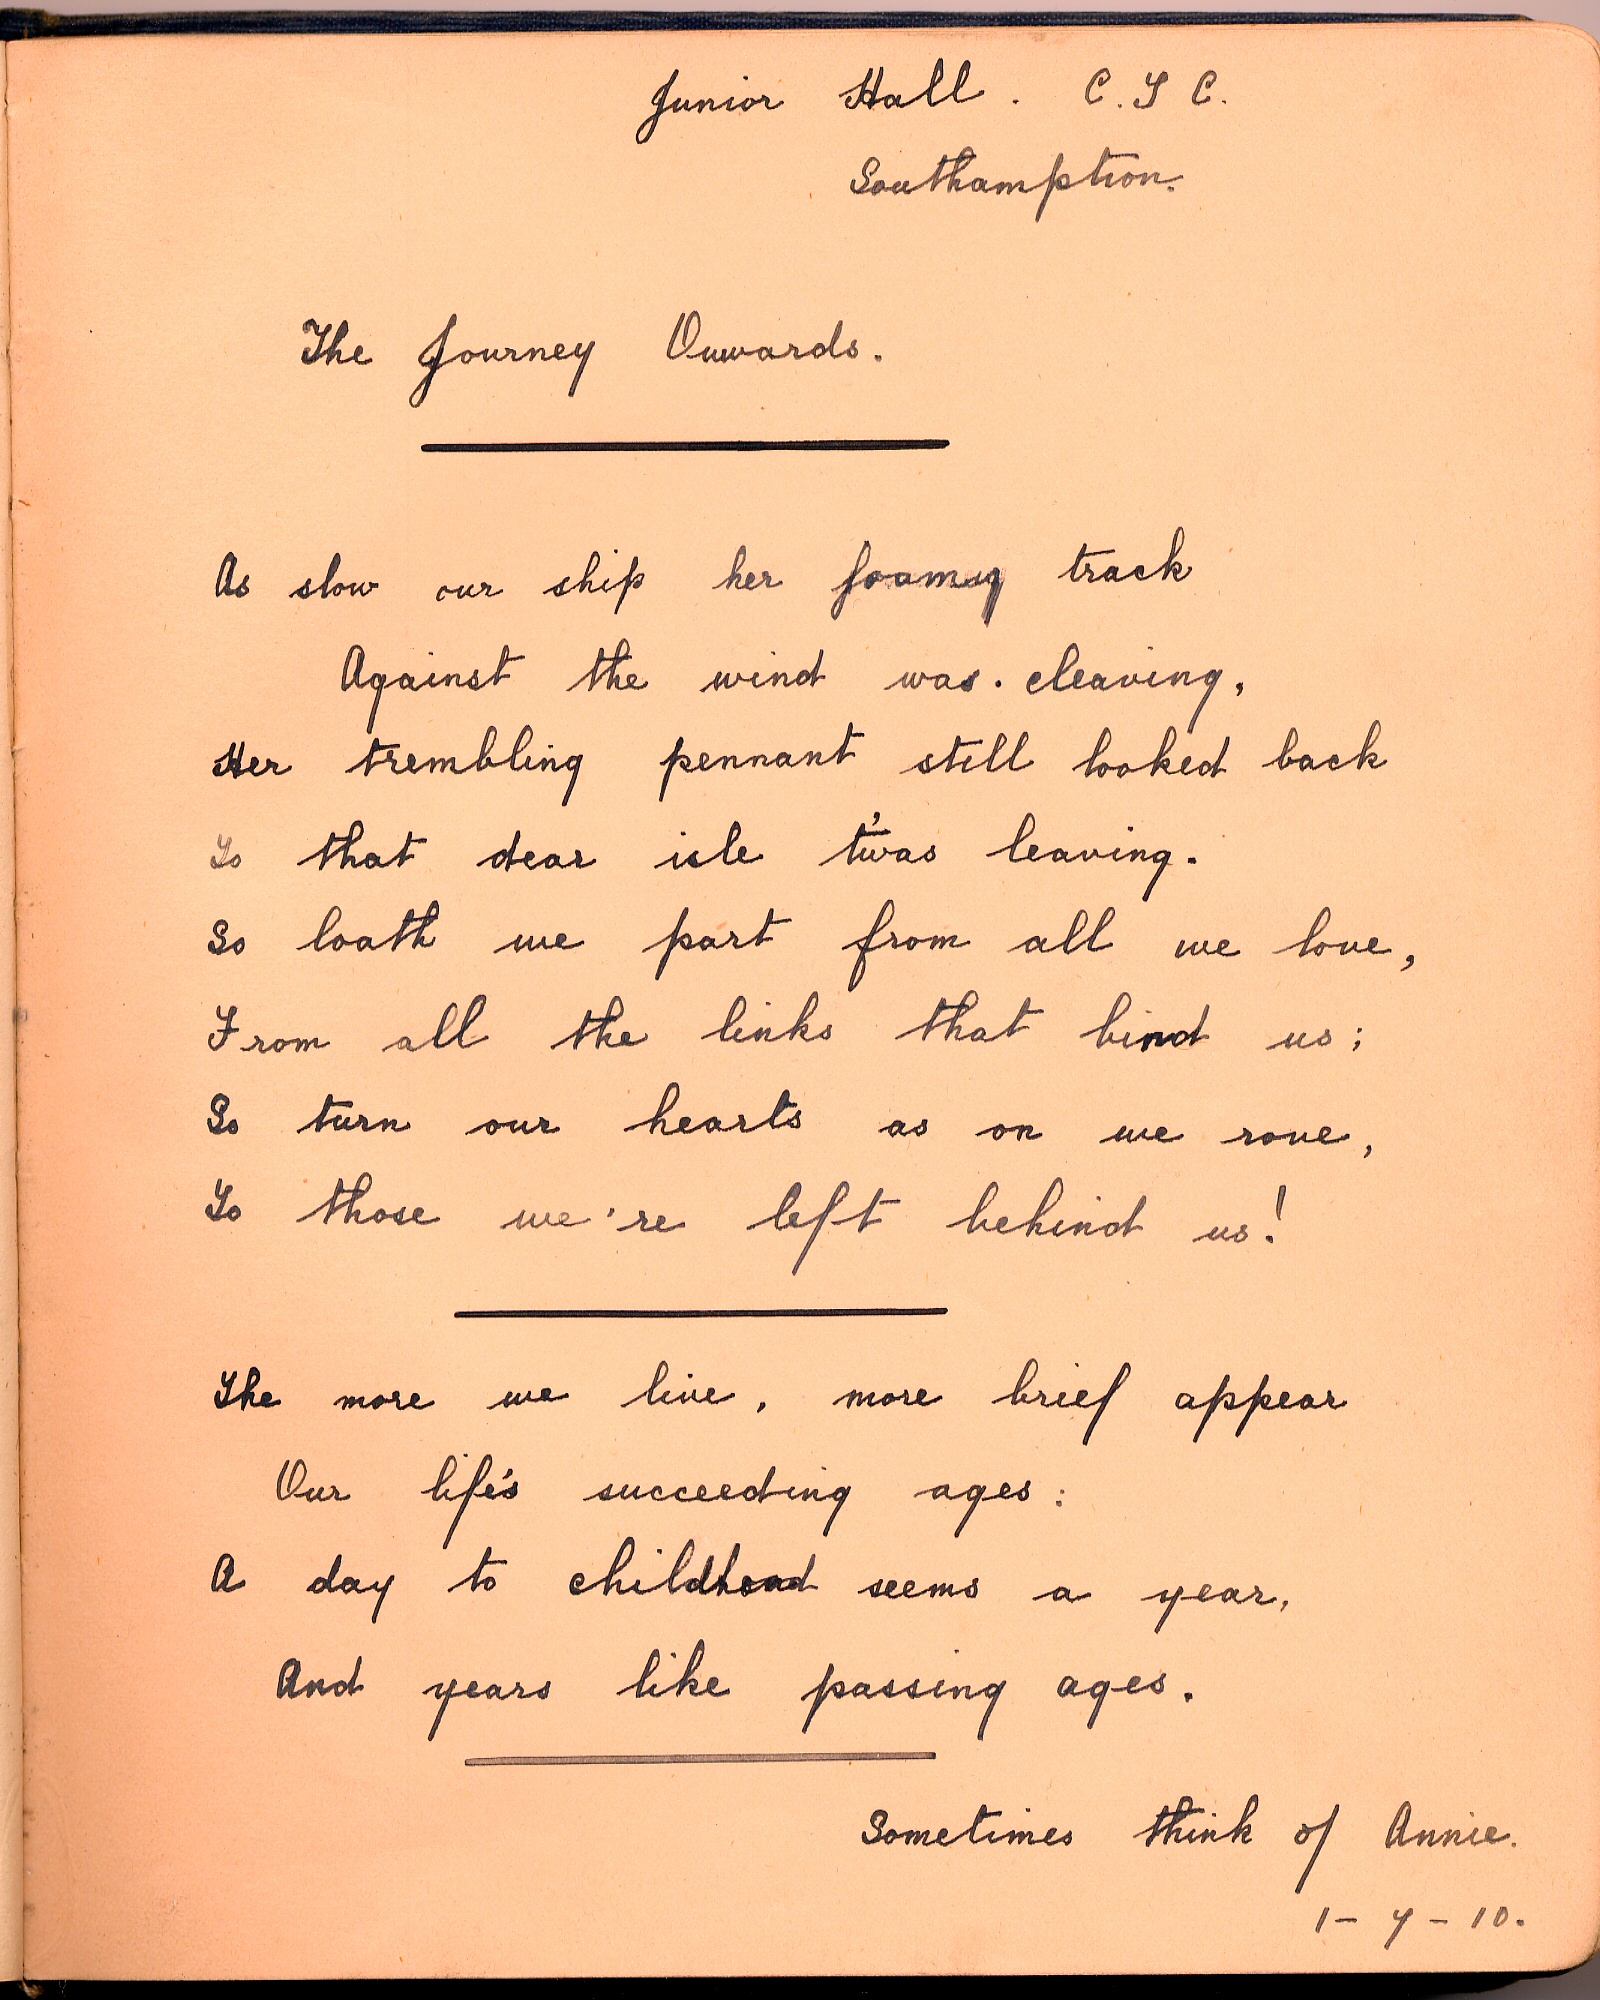 Junior Hall. C.T C.
Southampton.
The Journey Onwards.
As slow our ship her foamy track
Against the wind was. cleaving,
Her trembling pennant still looked back
To that dear isle t'was leaving.
So loath we part from all we love,
From all the links that bind us;
So turn our hearts as on we rove,
To those we're left behind us!
The more we live, more brief appear
Our life's succeeding ages:
A day to childhood seems a year,
And years like passing ages.
Sometimes think of Annie.
1 - 7 - 10.